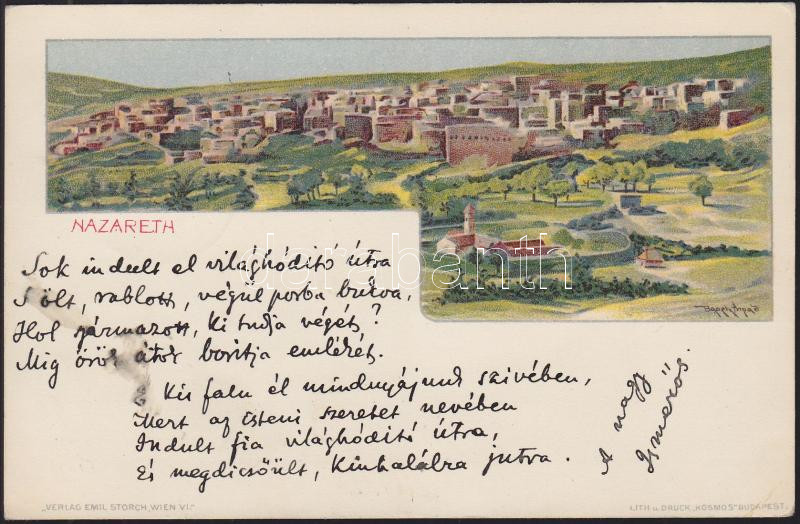 NAZARETH
Sok indult el világhódító útra
S ölt, rablott, végül porba bukva,
Hol származott, ki tudja végét?
Míg örök átok borítja emlékét.
E kis falu él mindnyájunk szivében,
Mert az isteni szeretet nevében
Indult fia világhódító útra,
És megdicsőült, kínhalálra jutva.
A nagy
Ismerős.
darabanth
„VERLAG EMIL STORCH, WIEN VI."
LITH u. DRUCK „KOSMOS" BUDAPEST.